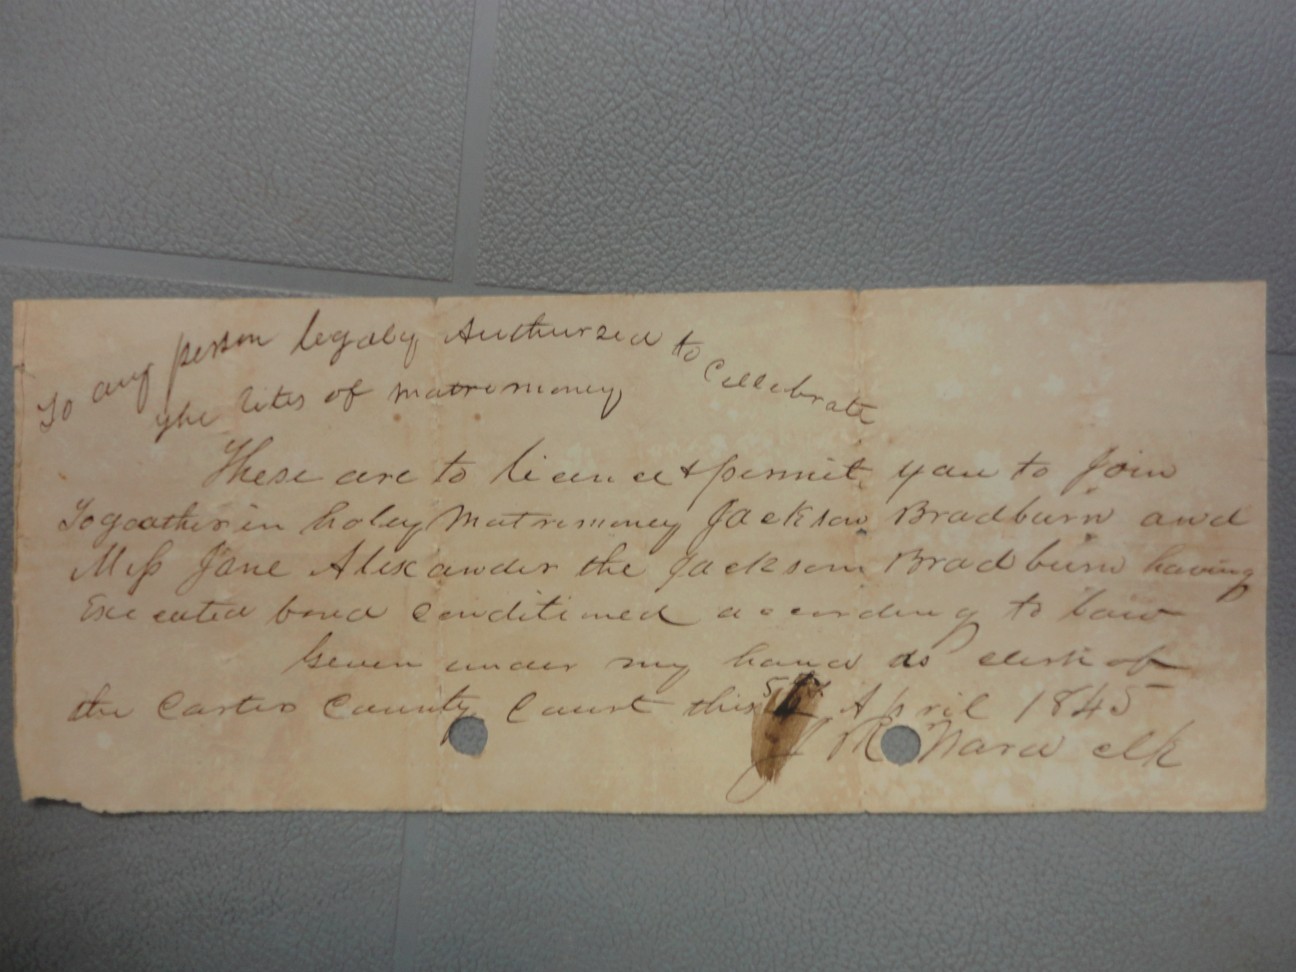 To any person legaly Authurzed to Cellebrate
the rites of matrimoney
These are to licence & permit you to Join
Togeather in holey Matrimoney Jackson Bradburn and
Miss Jane Alexander the Jackson Bradburn having
Executed bond conditioned according to law
Geven under my hand as clerk of
the Carter County Court this 5th April 1845
Ward clk